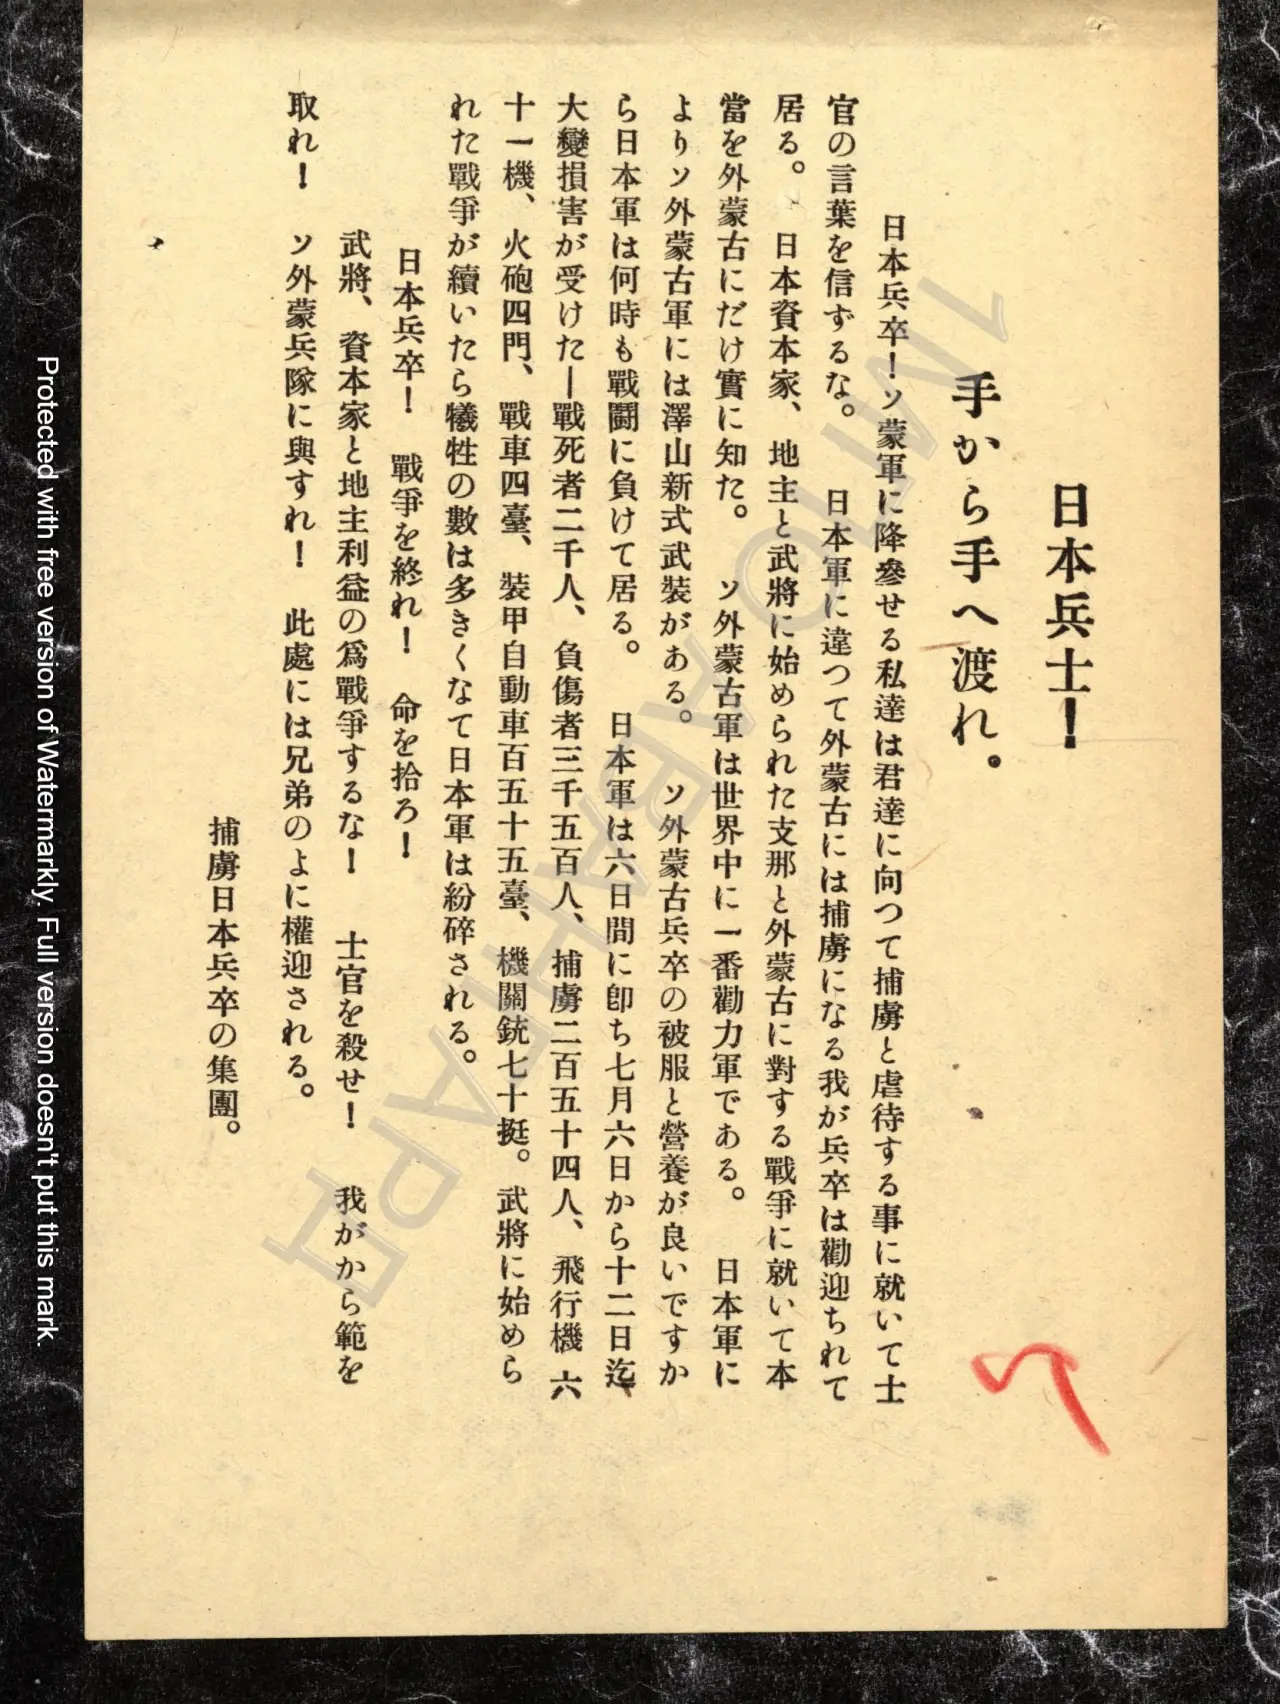 日本兵士!
手から手へ渡れ。
日本兵卒!ソ蒙軍に降參せる私達は君達に向つて捕虜と虐待する事に就いて士
官の言葉を信ずるな。 日本軍に違つて外蒙古には捕虜になる我が兵卒は勸迎ちれて
居る。 日本資本家、地主と武將に始められた支那と外蒙古に對する戰爭に就いて本
當を外蒙古にだけ實に知た。 ソ外蒙古軍は世界中に一番勸力軍である。 日本軍に
よりソ外蒙古軍には澤山新式武裝がある。 ソ外蒙古兵卒の被服と營養が良いですか
ら日本軍は何時も戰鬪に負けて居る。 日本軍は六日間に卽ち七月六日から十二日迄、
大變損害が受けた—戰死者二千人、負傷者三千五百人、捕虜二百五十四人、飛行機 六
十一機、火砲四門、戰車四臺、裝甲自動車百五十五臺、機關銃七十挺。武將に始めら
れた戰爭が續いたら犧牲の數は多きくなて日本軍は紛碎される。
日本兵卒! 戰爭を終れ! 命を拾ろ!
武將、資本家と地主利益の爲戰爭するな! 士官を殺せ! 我がから範を
取れ! ソ外蒙兵隊に與すれ! 此處には兄弟のよに權迎される。
捕虜日本兵卒の集團。
1МТО АВАНГАРД
Protected with free version of Watermarkly. Full version doesn't put this mark.